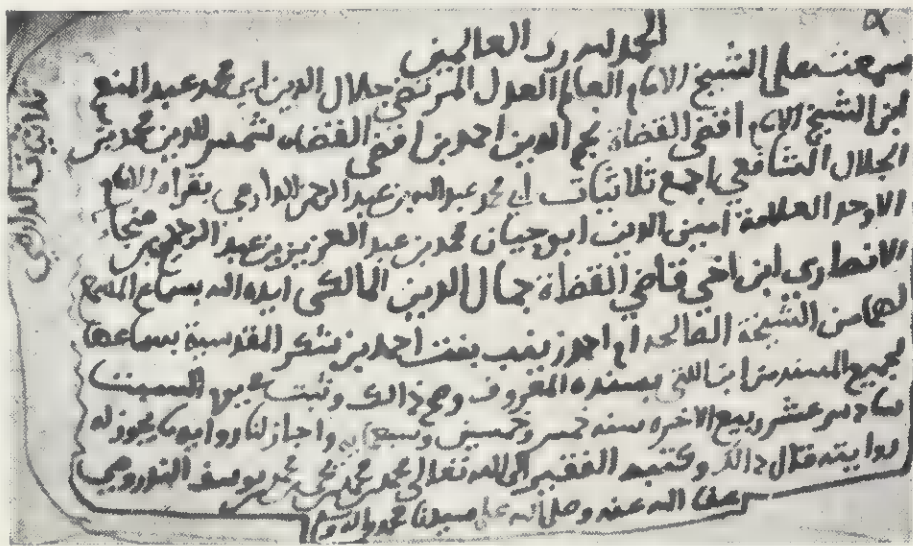 الحمد لله رب العالمين
سمعت على الشيخ الامام العالم العدل المرتضى جلال الدين ابي محمد عبد المنعم
ابن الشيخ الامام اقضى القضاة نجم الدين احمد بن اقضى القضاه شمس الدين محمد بن
الجلال الشافعي اجمع ثلاثيات ابي محمد عبد الله بن عبد الرحمن الدارمي بقراه الامام
الاوحد العلامة امين الدين ابو حيان محمد بن عبد العزيز بن عبد الرحيم بن
الانصاري ابن اخي قاضي القضاة جمال الدين المالكي ايده الله بسماع المسمع
لها من الشيخة الصالحه ام احمد زينب بنت احمد بن شكر المقدسية بسماعها
لجميع المسند من ابن اللتي بسنده المعروف وصح ذالك وثبت السبت
سادس عشر ربيع الاخره سنه خمس وخمسين وسبعمايه واجاز لنا رواية ما يجوز له
روايته قال ذالك وكتبه الفقير الى الله تعالى محمد بن محمد بن يحيى بن محمد بن يوسف الندرومي
عفا الله عنه وصلى الله على سيدنا محمد واله وسلم
ثلاثيات الدارمي